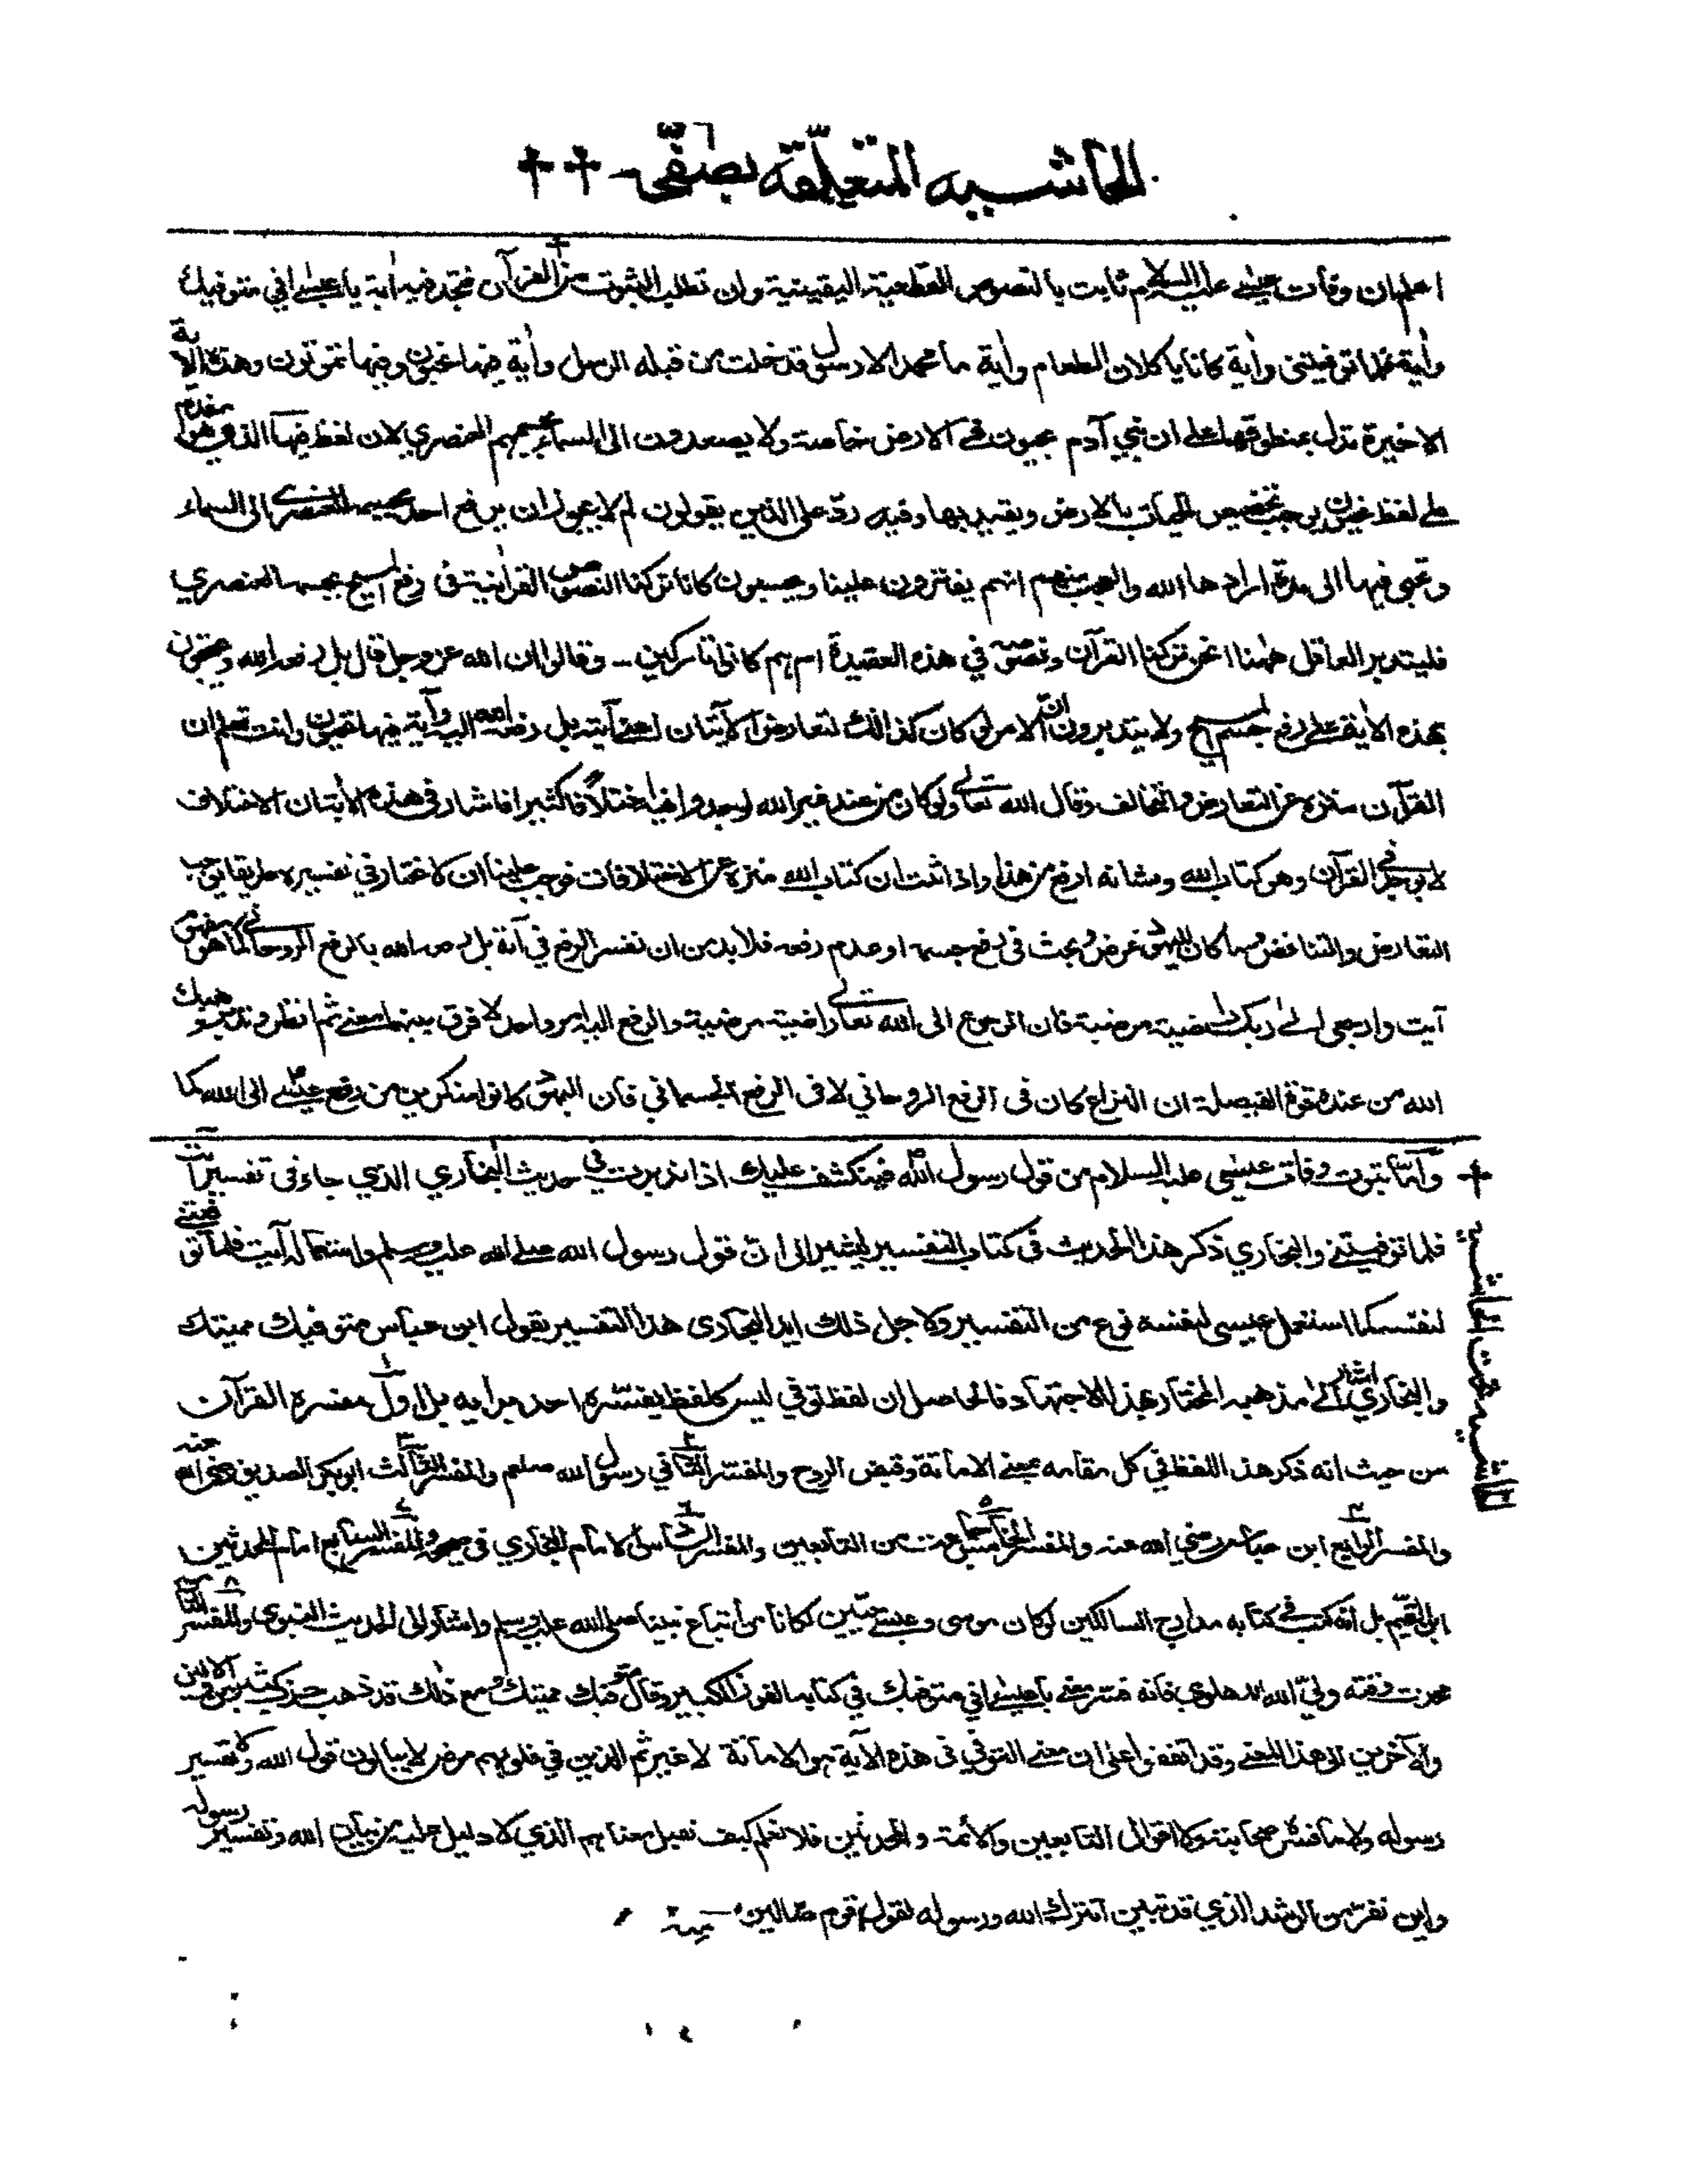 الحاشية المتعلقة بصفحة
اعلم ان وفات عيسى عليه السلام ثابت بالنصوص القطعية اليقينية وان تطلب الثبوت من القرآن فتجد فيه اٰية يا عيسى اني متوفيك
واٰية فلما توفيتني واٰية كانا ياكلان الطعام واٰية ما محمد الا رسول قد خلت من قبله الرسل واٰية فيها تحيون وفيها تموتون وهذه الآية
الاخيرة تدل بمنطوقها على ان بني آدم يحيون في الارض خاصة ولا يصعدون الى السماء بجسمهم العنصري لان لفظ فيها الذي هو مقدم
على لفظ تحيون يوجب تخصيص الحيات بالارض ويقيد بها وفيه ردّ على الذين يقولون لم لا يجوز ان يرفع احد بجسمه العنصري الى السماء
وتحيى فيها الى مدة ارادها الله والعجب منهم انهم يفترون علينا ويحسبون كانا تركنا النصوص القرآنية في رفع المسيح بجسمه العنصري
فليتدبر العاقل ههنا انحن تركنا القرآن ونصوصه في هذه العقيدة ام هم كانوا تاركين -- وقالوا ان الله عز وجل قال بل رفعه الله ويحتجون
بهذه الآية على رفع جسم المسيح ولا يتدبرون ان الامر لو كان كذالك لتعارض الآيتان اعني آية بل رفعه الله اليه وآية فيها تحيون وانت تعلم ان
القرآن منزه عن التعارض والتخالف وقال الله تعالى ولو كان من عند غير الله لوجدوا فيه اختلافا كثيرا فاشار في هذه الآية ان الاختلاف
لا يوجد في القرآن وهو كتاب الله وشانه ارفع من هذا واذا ثبت ان كتاب الله منزه عن الاختلافات فوجب علينا ان لا نختار في تفسيره طريقا يوجب
التعارض والتناقض وما كان لليهود غرض وبحث في رفع جسمه او عدم رفعه فلا بد من ان نفسر الرفع في آية بل رفعه الله بالرفع الروحاني كما هو مفهوم
آيت وارجعي الى ربك راضية مرضية فان الرجوع الى الله تعالى راضية مرضية والرفع اليه امر واحد لا فرق بينهما معنى ثم انظر وتدبر وهبك
الله من عنده قوة الفيصلة ان النزاع كان في الرفع الروحاني لا في الرفع الجسماني فان اليهود كانوا منكرين من رفع عيسى الى الله كما
وامّا ثبوت وفات عيسى عليه السلام من قول رسول الله فينكشف عليك اذا تدبرت في حديث البخاري الذي جاء في تفسير آيت
فلما توفيتني والبخاري ذكر هذا الحديث في كتاب التفسير ليشير الى ان قول رسول الله صلى الله عليه وسلم واستعماله آيت فلما توفيتني
لنفسه كما استعمل عيسى لنفسه نوع من التفسير ولاجل ذلك ايد البخاري هذا التفسير بقول ابن عباس متوفيك مميتك
والبخاري اشار الى مذهبه المختار بهذا الاجتهاد فالحاصل ان لفظ توفي ليس كلفظ يفسّره احد برايه بل اول مفسره القرآن
من حيث انه ذكر هذا اللفظ في كل مقامه بمعنى الاماتة وقبض الروح والمفسر الثاني رسول الله صلعم والمفسر الثالث ابوبكر الصديق رضي الله عنه
والمفسر الرابع ابن عباس رضي الله عنه والمفسر الخامس جماعت من التابعين والمفسر السادس الامام البخاري في صحيحه والمفسر السابع امام المحدثين
ابن القيم بل انه كتب في كتابه مدارج السالكين لو كان موسى وعيسى حيّين لكانا من أتباع نبينا صلى الله عليه وسلم واشار الى الحديث النبوي والمفسر الثامن
محدث وقته وليّ الله الدهلوي فانه فسّر معنى يا عيسى اني متوفيك في كتابه الفوز الكبير وقال متوفيك مميتك ومع ذلك قد ذهب حزب كثير من الاولين
والآخرين الى هذا المعنى وقد اتفقوا على ان معنى التوفّي في هذه الآية هو الاماتة لا غير ثم الذين في قلوبهم مرض لا يبالون قول الله ولا تفسير
رسوله ولا ما فسّر صحابته ولا اقوال التابعين والأئمة والمحدثين فلا نعلم كيف نقبل معناهم الذي لا دليل عليه من بيان الله وتفسير رسوله
واين نفرّ من الرشد الذي قد تبين أنترك الله ورسوله لقول قوم ضالين منه
الحاشية تحت الحاشية